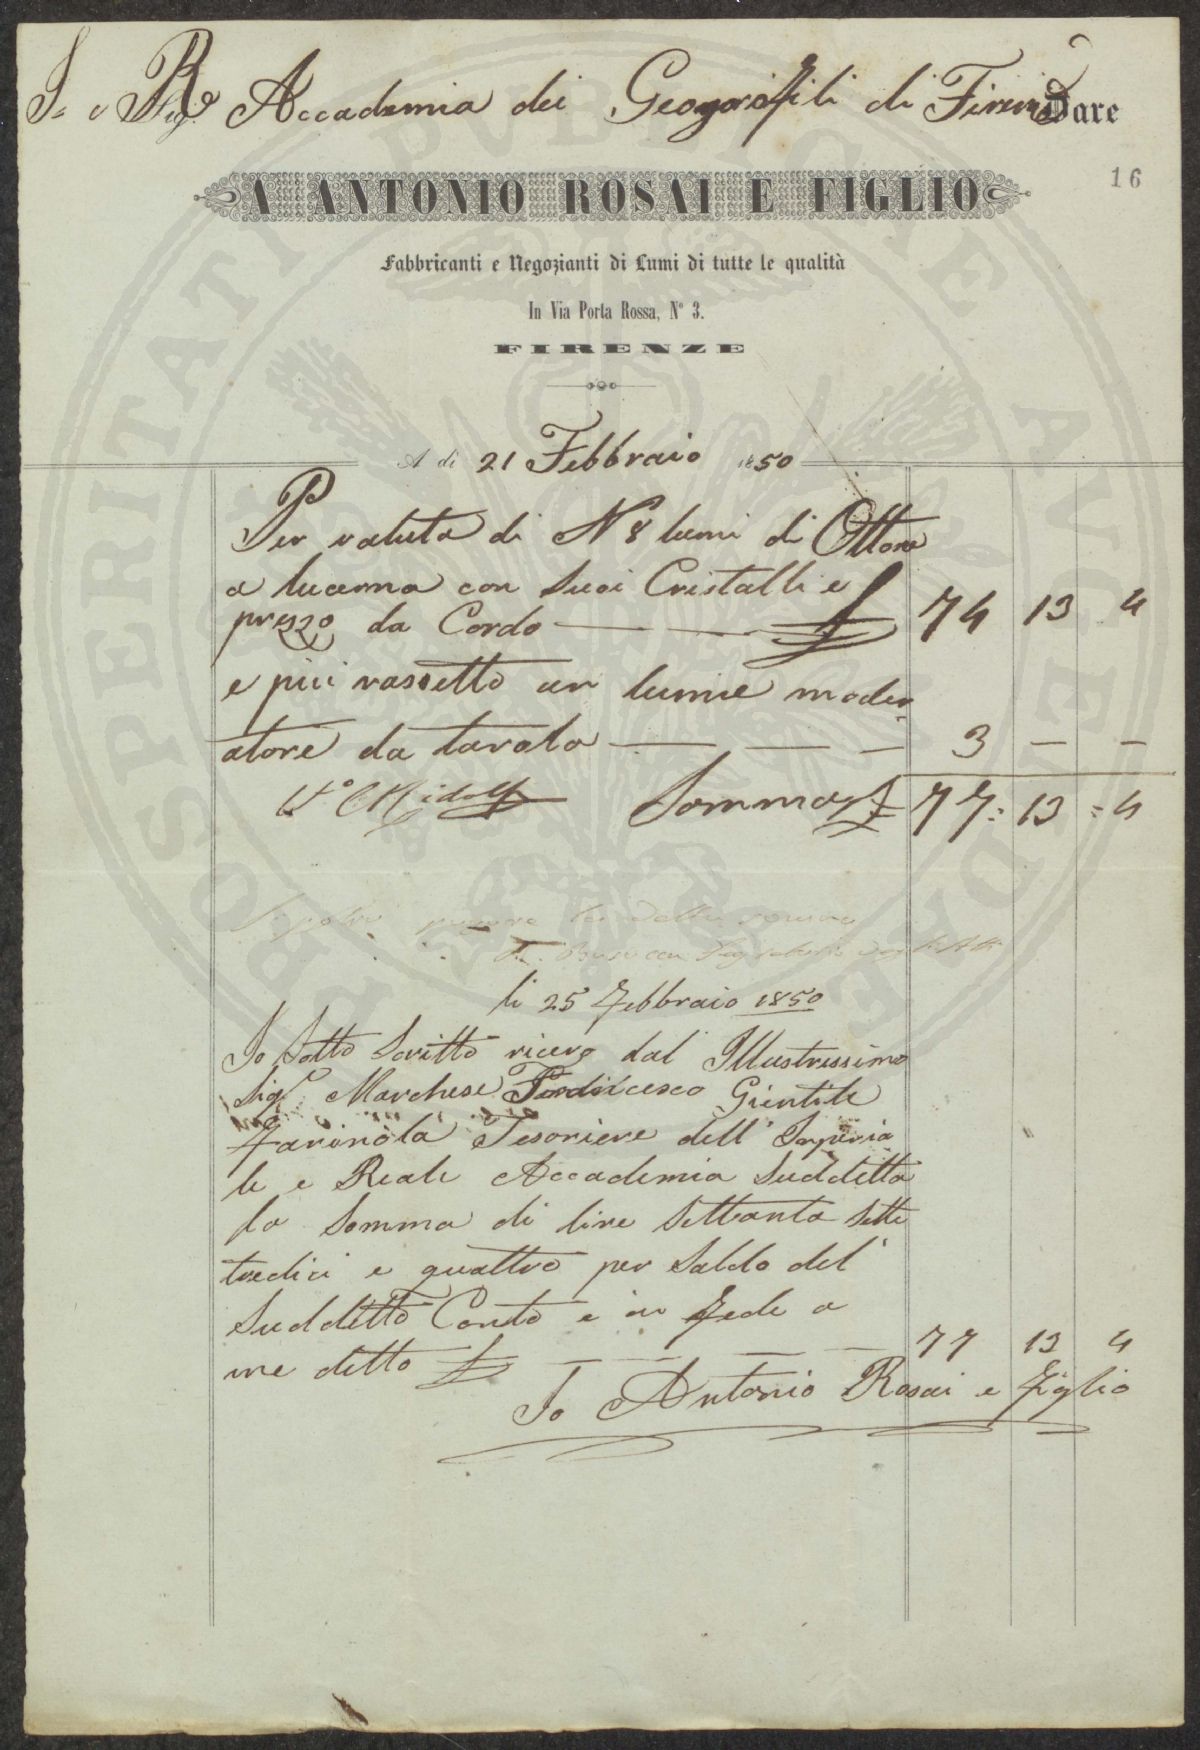 I. e R. Accademia dei Georgofili di Firenze Dare
A ANTONIO ROSAI E FIGLIO
16
Fabbricanti e Negozianti di Lumi di tutte le qualità
In Via Porta Rossa, N° 3.
FIRENZE
A dì 21 Febbraio 1850
Per valuta di N 8 lumi di Ottone
a lucerna con suoi Cristalli e
prezzo da Cordo £ 74 13 4
e più rassetto un lume moder
atore da tavola 3 — —
Vo CRidolfi Somma £ 77 = 13 = 4
pagare la detta somma
li 25 Febbraio 1850
Io Sotto Scritto ricevo dal Illustressimo
Sigr Marchese Francesco Gientile
Farinola Tesoriere dell' Imperia
le e Reale Accademia Suddetta
la Somma di lire Settanta Sette
tredici e quattro per Saldo del
Suddetto Conto e in Fede a
me detto £ 77 13 4
Io Antonio Rosai e Figlio
PROSPERITATI PVBLICAE AVGENDAE